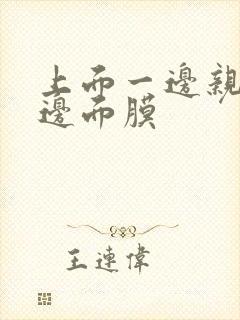 上而一邊親
邊而膜
王連偉